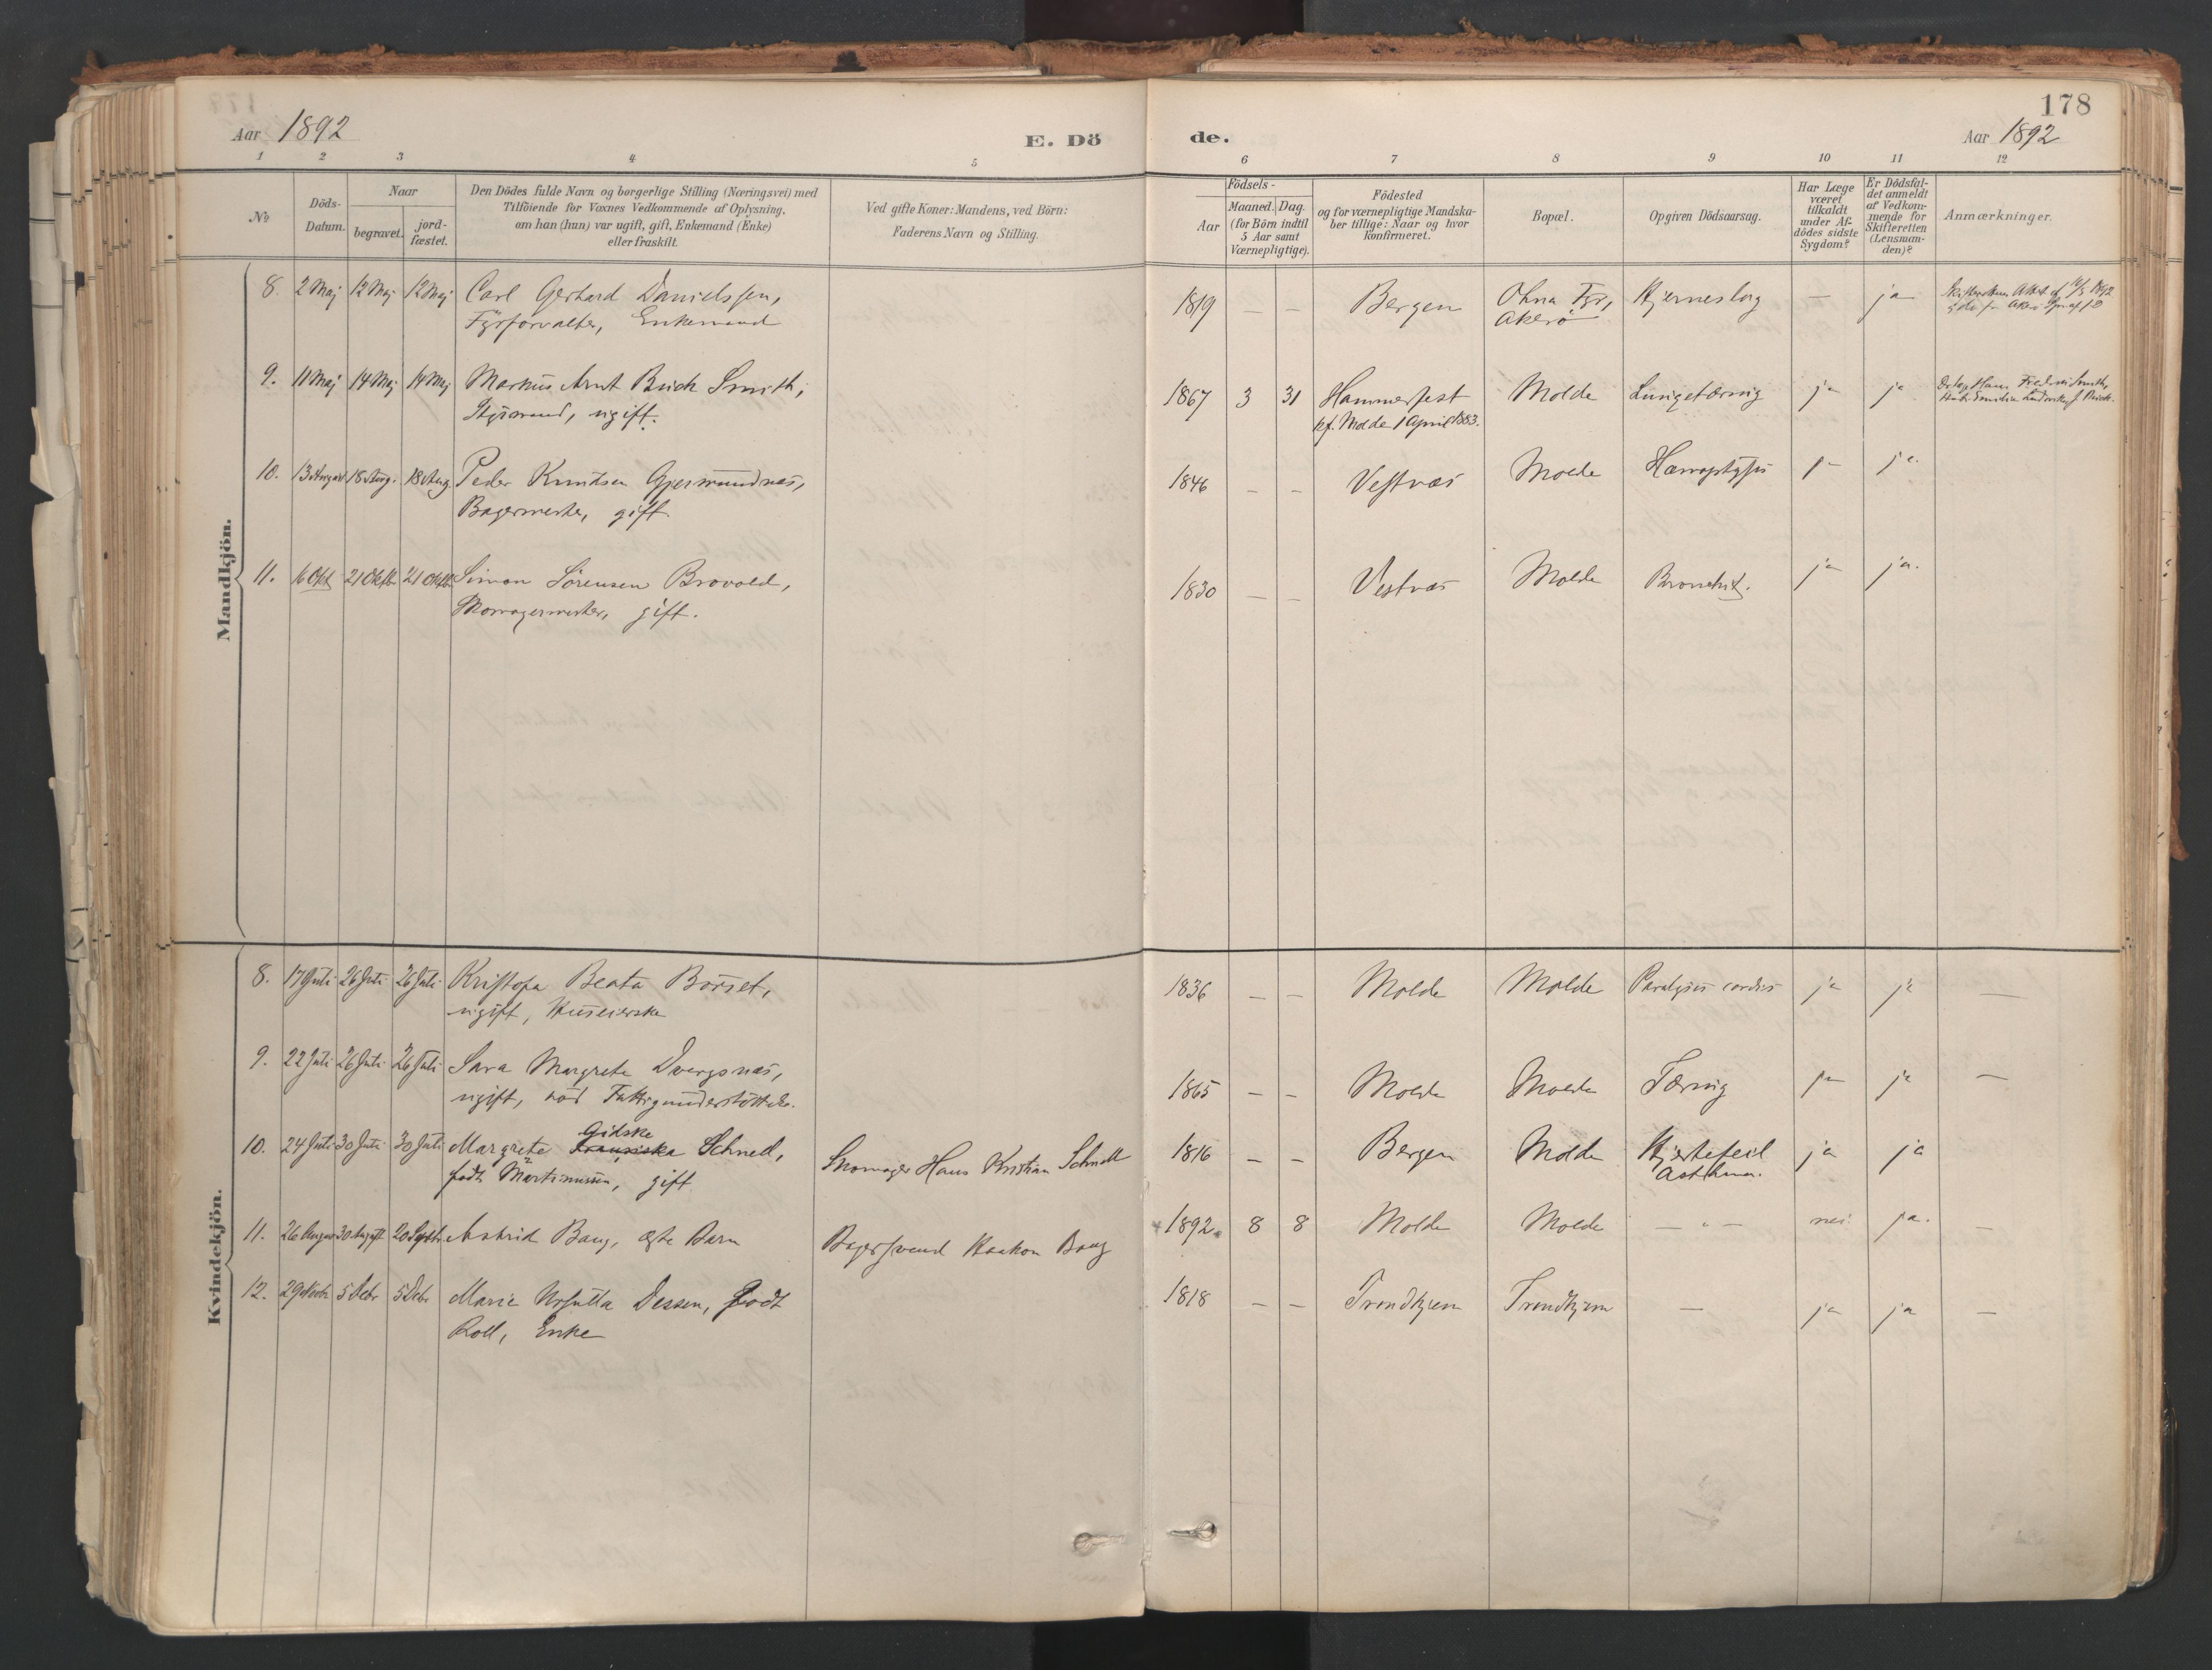 178
Aar 1892
E. Dö
de.
Aar 1892
1 2 3 4 5 6 7 8 9 10 11 12
№
Döds-Datum.
Naar
begravet.
jord-fæstet.
Den Dödes fulde Navn og borgerlige Stilling (Næringsvei) med
Tilföiende for Voxnes Vedkommende af Oplysning,
om han (hun) var ugift, gift, Enkemand (Enke)
eller fraskilt.
Ved gifte Koner: Mandens, ved Börn:
Faderens Navn og Stilling.
Födsels-
Aar
Maaned. Dag.
(for Börn indtil
5 Aar samt
Værnepligtige).
Födested
og for værnepligtige Mandska-
ber tillige: Naar og hvor
konfirmeret.
Bopæl.
Opgiven Dödsaarsag.
Har Læge
været
tilkaldt
under Af-
dödes sidste
Sygdom?
Er Dödsfal-
det anmeldt
af Vedkom-
mende for
Skifteretten
(Lensman-
den)?
Anmærkninger.
Mandkjön.
8. 2 Maj 12 Maj 12 Maj Carl Gerhard Danielssen, 1819 — — Bergen Ohna Fyr, Hjerneslag — ja
Fyrforvalter, Enkemand Akerö
9. 11 Maj 14 Maj 14 Maj Markus Arnt Buck Smith, 1867 3 31 Hammerfest Molde Lungetæring ja ja
Styrmand, ugift. kf. Molde 1 April 1883.
10. 13 August 18 Aug. 18 Aug. Peder Knudsen Gjermundnæs, 1846 — — Vestnæs Molde Hæmoptysis ja ja.
Bagermester, gift.
11. 16 Okt 21 Oktbr 21 Oktbr Simon Sörensen Brovold, 1830 — — Vestnæs Molde Bronchit. ja ja.
Skomagermester, gift.
Kvindekjön.
8. 17 Juli 26 Juli 26 Juli Kristofa Beata Börset, 1836 — — Molde Molde Paralysis cordis ja ja —
ugift, Huseierske
9. 22 Juli 26 Juli 26 Juli Sara Margrete Dvergsnæs, 1865 — — Molde Molde Tæring ja ja —
ugift, nöd Fattigunderstöttelse.
Gidske
10. 24 Juli 30 Juli 30 Juli Margrete Schnell, Skomager Hans Kristian Schnell 1816 — — Bergen Molde Hjertefeil ja ja
födt Martinussen, gift Asthma.
11. 26 August 30 August 20 Septbr Astrid Bang, ægte Barn Bagersvend Haakon Bang 1892 8 8 Molde Molde — " — nei ja. —
12. 29 Novbr 5 Debr 5 Debr Marie Ursulla Dessen, födt 1818 — — Trondhjem Trondhjem — ja ja —
Roll, Enke